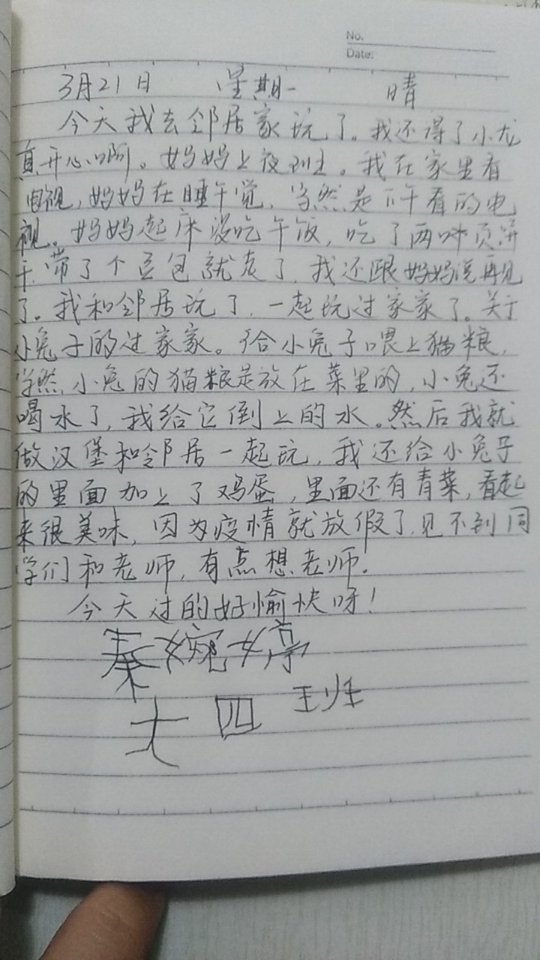 No.
Date:
3月21日 星期一 晴
今天我去邻居家玩了。我还得了小龙
真开心啊。妈妈上夜班。我在家里看
电视，妈妈在睡午觉，当然是下午看的电
视。妈妈起床没吃午饭，吃了两块页饼
干，带了个豆包就走了，我还跟妈妈说再见
了。我和邻居玩了，一起玩过家家了。关于
小兔子的过家家。给小兔子喂上猫粮，
当然，小兔的猫粮是放在菜里的，小兔还
喝水了，我给它倒上的水。然后我就
做汉堡和邻居一起玩，我还给小兔子
的里面加上了鸡蛋，里面还有青菜，看起
来很美味，因为疫情就放假了，见不到同
学们和老师，有点想老师。
今天过的好愉快呀！
秦婉婷
大四班